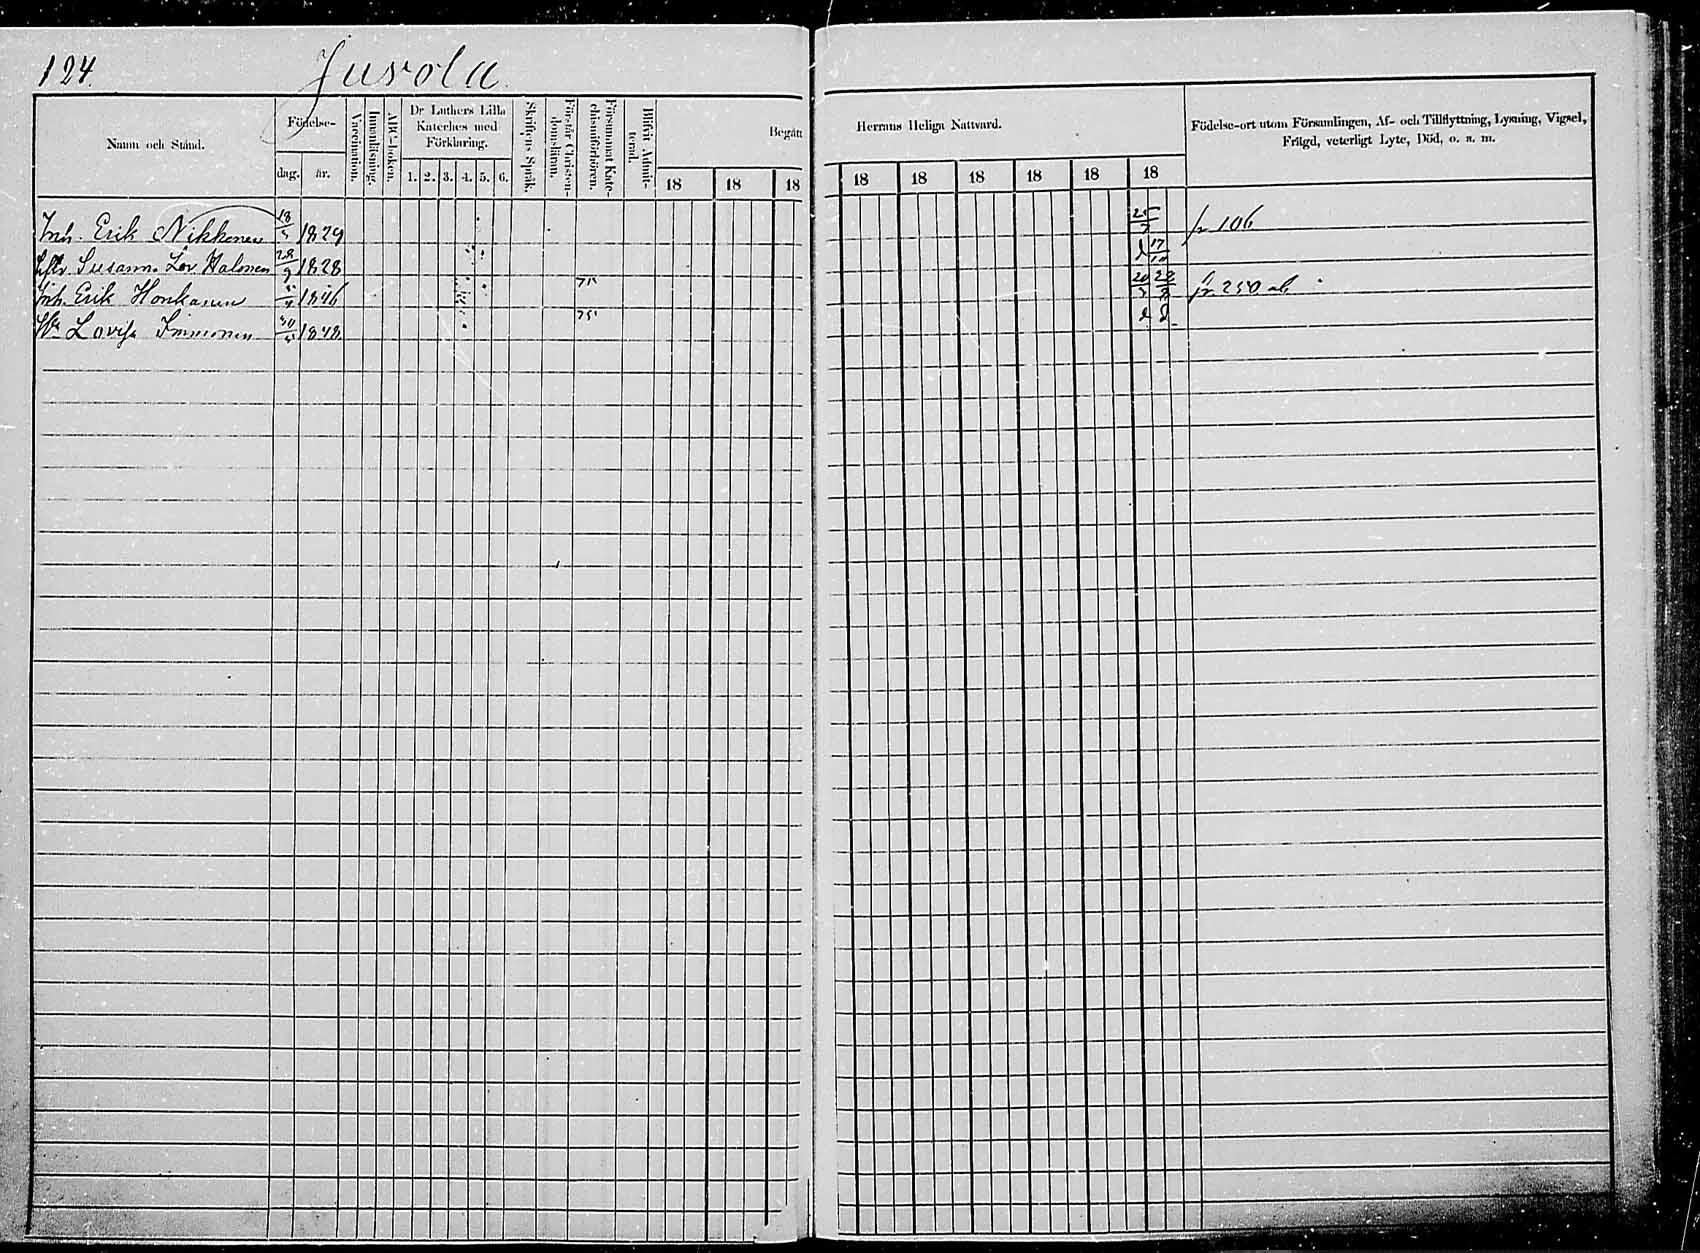 124.
Juvola
Namn och Stånd.
Födelse-
dag.
år.
Vaccination.
Innanläsning.
ABC-boken.
Dr Luthers Lilla
Kateches med
Förklaring.
1. 2. 3. 4. 5. 6.
Skriftens Språk.
Förstår Christen-
domsläran.
Försummat Kate-
chismiförhören.
Blifvit Admit-
terad.
Begått
18 18 18
Herrans Heliga Nattvard.
18 18 18 18 18 18
Födelse-ort utom Församlingen, Af- och Tillflyttning, Lysning, Vigsel,
Frägd, veterligt Lyte, Död, o. s. m.
Inh. Erik Nikkonen 18/5 1829 25/7 fr 106
Susanna Lov. Halonen 28/9 1828 17/10
Inh. Erik Honkanen 1846 75 fr 250 ab
Hu Lovisa Immonen 1848 75